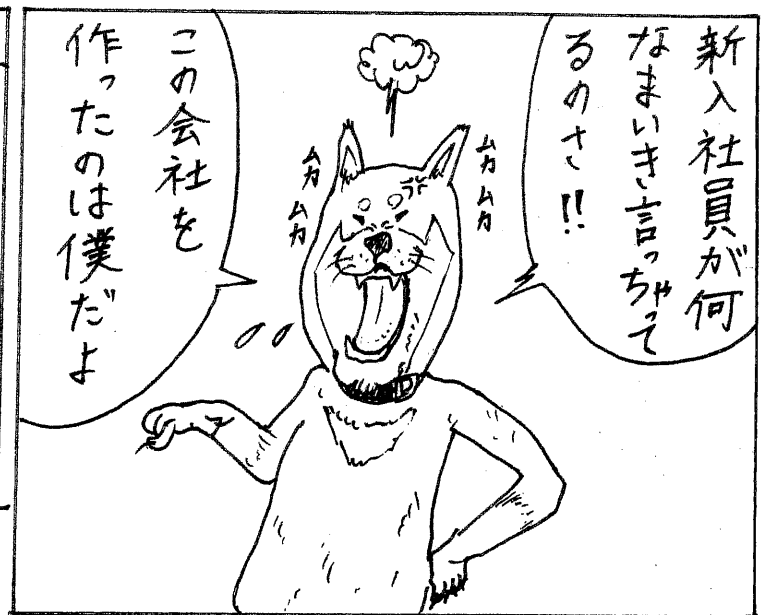 新入社員が何
なまいき言っちゃって
るのさ!!
ムカムカ
ムカムカ
この会社を
作ったのは僕だよ